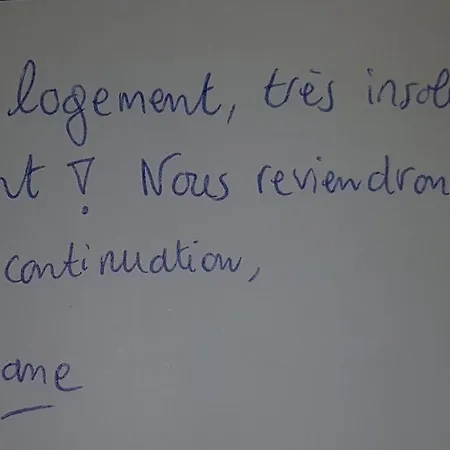 logement, très insol
nt ! Nous reviendron
continuation,
ane